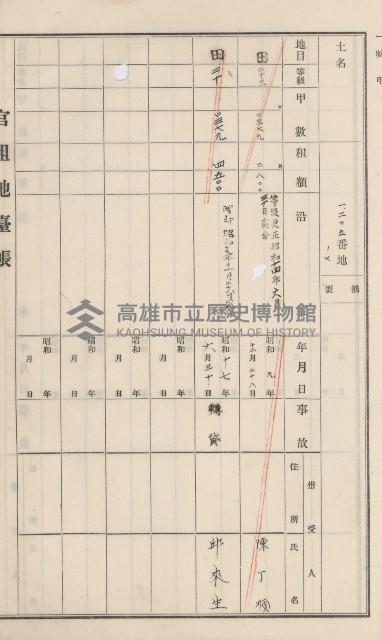 土名
一、二〇五番地
ノ七
摘要
地目
等級
甲數
租額
沿
年月日
事故
借受人
住所
氏名
田
二十三
〇三七九
二八〇〇
等級更正昭和十四年六月
三十日處分
昭和九年
十二月二十八日
陳丁順
田
三十
〇三七九
四五〇〇
昭和十七年
六月三十日
轉貸
邱來生
昭和年
月日
昭和年
月日
昭和年
月日
昭和年
月日
官租地臺帳
高雄市立歷史博物館
KAOHSIUNG MUSEUM OF HISTORY